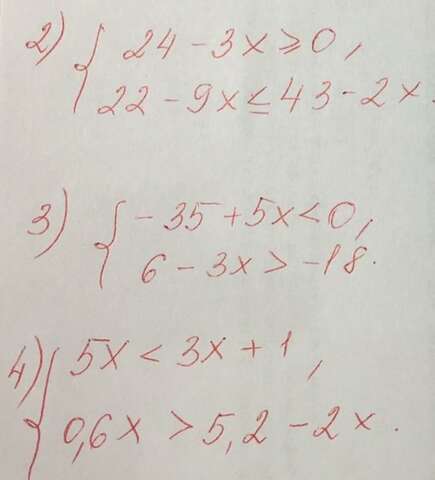 2) { 24 - 3x ≥ 0,
22 - 9x ≤ 43 - 2x.
3) { -35 + 5x < 0,
6 - 3x > -18.
4) { 5x < 3x + 1,
0,6x > 5,2 - 2x.